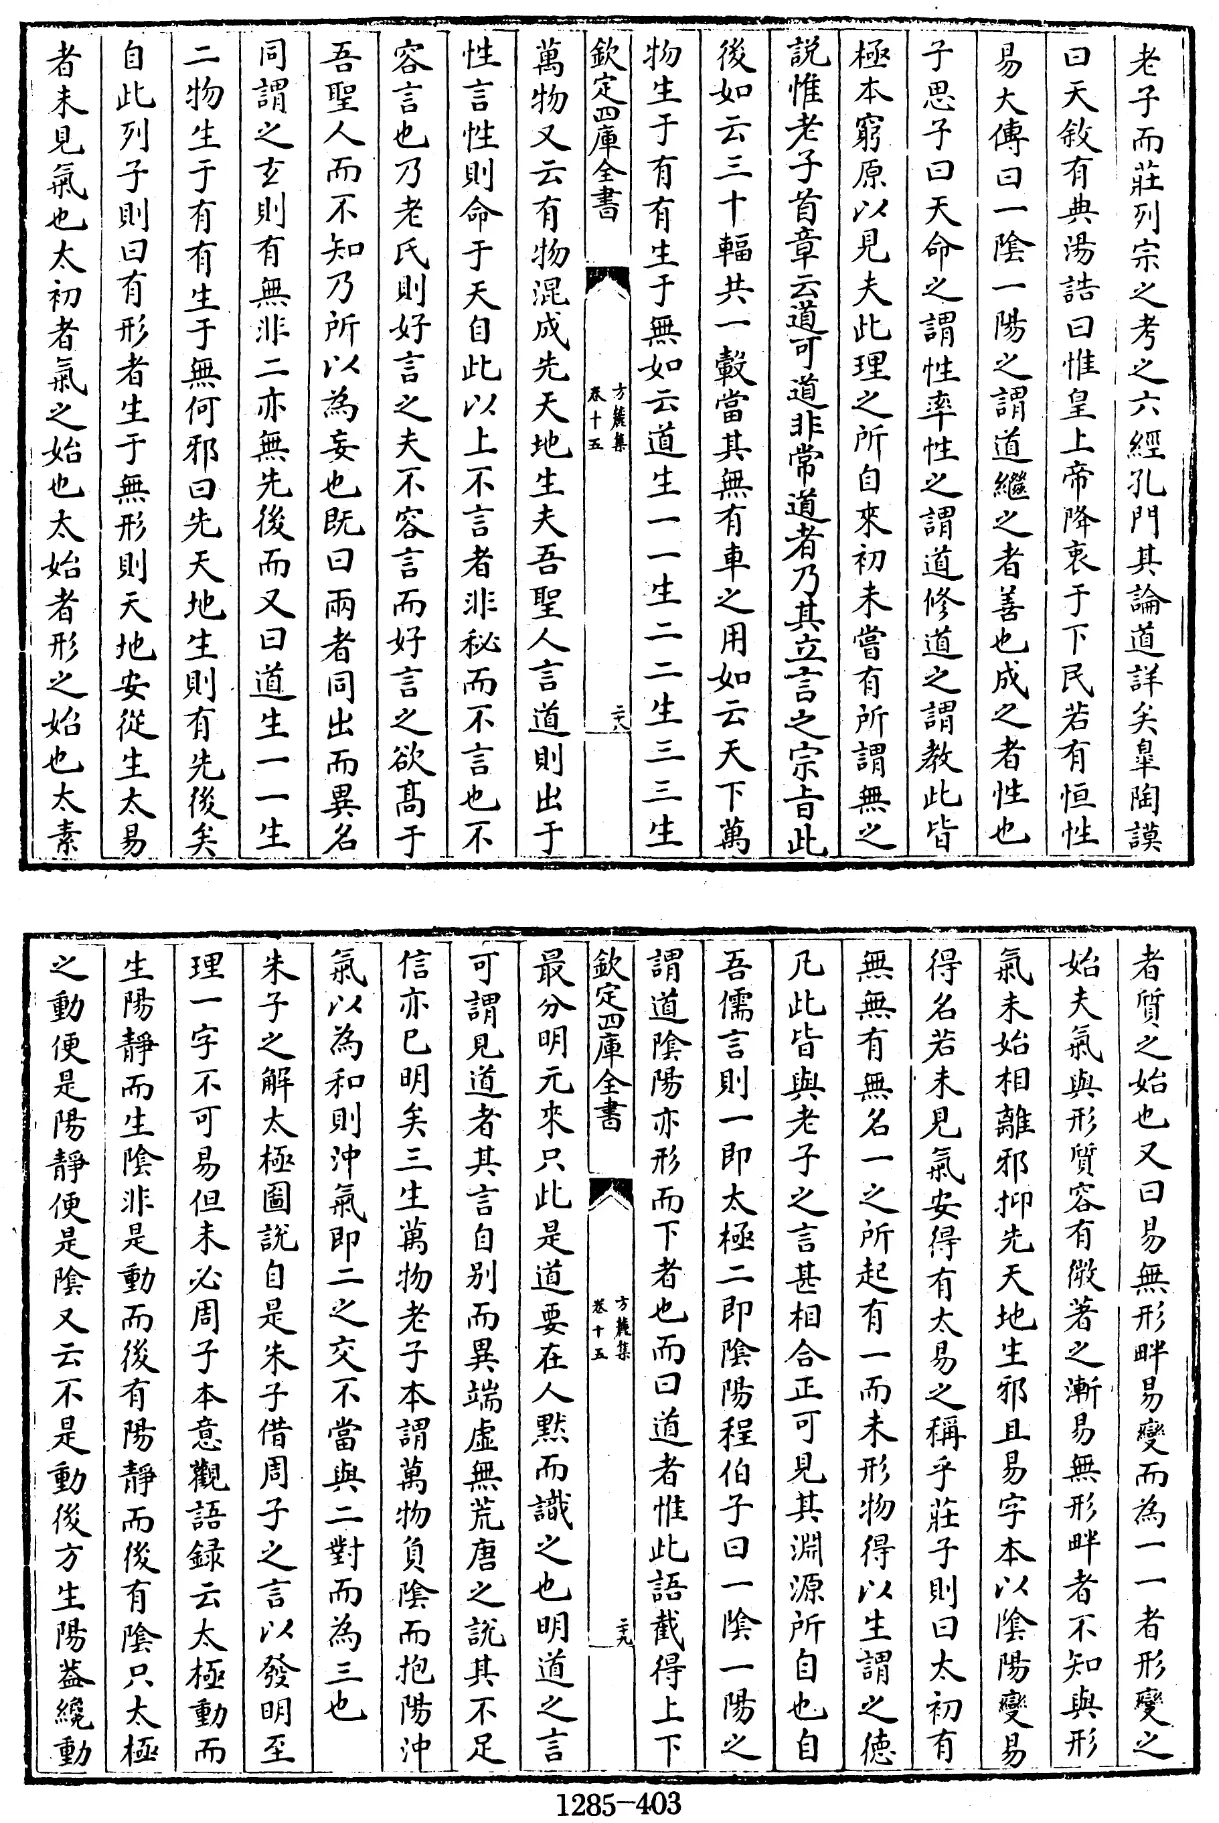 老子而莊列宗之考之六經孔門其論道詳矣臯陶謨
曰天敘有典湯誥曰惟皇上帝降衷于下民若有恒性
易大傳曰一陰一陽之謂道繼之者善也成之者性也
子思子曰天命之謂性率性之謂道修道之謂教此皆
極本窮原以見夫此理之所自來初未嘗有所謂無之
説惟老子首章云道可道非常道者乃其立言之宗旨此
後如云三十輻共一轂當其無有車之用如云天下萬
物生于有有生于無如云道生一一生二二生三三生
欽定四庫全書
方麓集
卷十五
二十八
萬物又云有物混成先天地生夫吾聖人言道則出于
性言性則命于天自此以上不言者非秘而不言也不
容言也乃老氏則好言之夫不容言而好言之欲髙于
吾聖人而不知乃所以為妄也既曰兩者同出而異名
同謂之玄則有無非二亦無先後而又曰道生一一生
二物生于有有生于無何邪曰先天地生則有先後矣
自此列子則曰有形者生于無形則天地安從生太易
者未見氣也太初者氣之始也太始者形之始也太素
者質之始也又曰易無形畔易變而為一一者形變之
始夫氣與形質容有微著之漸易無形畔者不知與形
氣未始相離邪抑先天地生邪且易字本以陰陽變易
得名若未見氣安得有太易之稱乎莊子則曰太初有
無無有無名一之所起有一而未形物得以生謂之徳
凡此皆與老子之言甚相合正可見其淵源所自也自
吾儒言則一即太極二即陰陽程伯子曰一陰一陽之
謂道陰陽亦形而下者也而曰道者惟此語截得上下
欽定四庫全書
方麓集
卷十五
二十九
最分明元來只此是道要在人黙而識之也明道之言
可謂見道者其言自别而異端虛無荒唐之説其不足
信亦已明矣三生萬物老子本謂萬物負陰而抱陽沖
氣以為和則沖氣即二之交不當與二對而為三也
朱子之解太極圖説自是朱子借周子之言以發明至
理一字不可易但未必周子本意觀語録云太極動而
生陽靜而生陰非是動而後有陽靜而後有陰只太極
之動便是陽靜便是陰又云不是動後方生陽葢纔動
1285-403